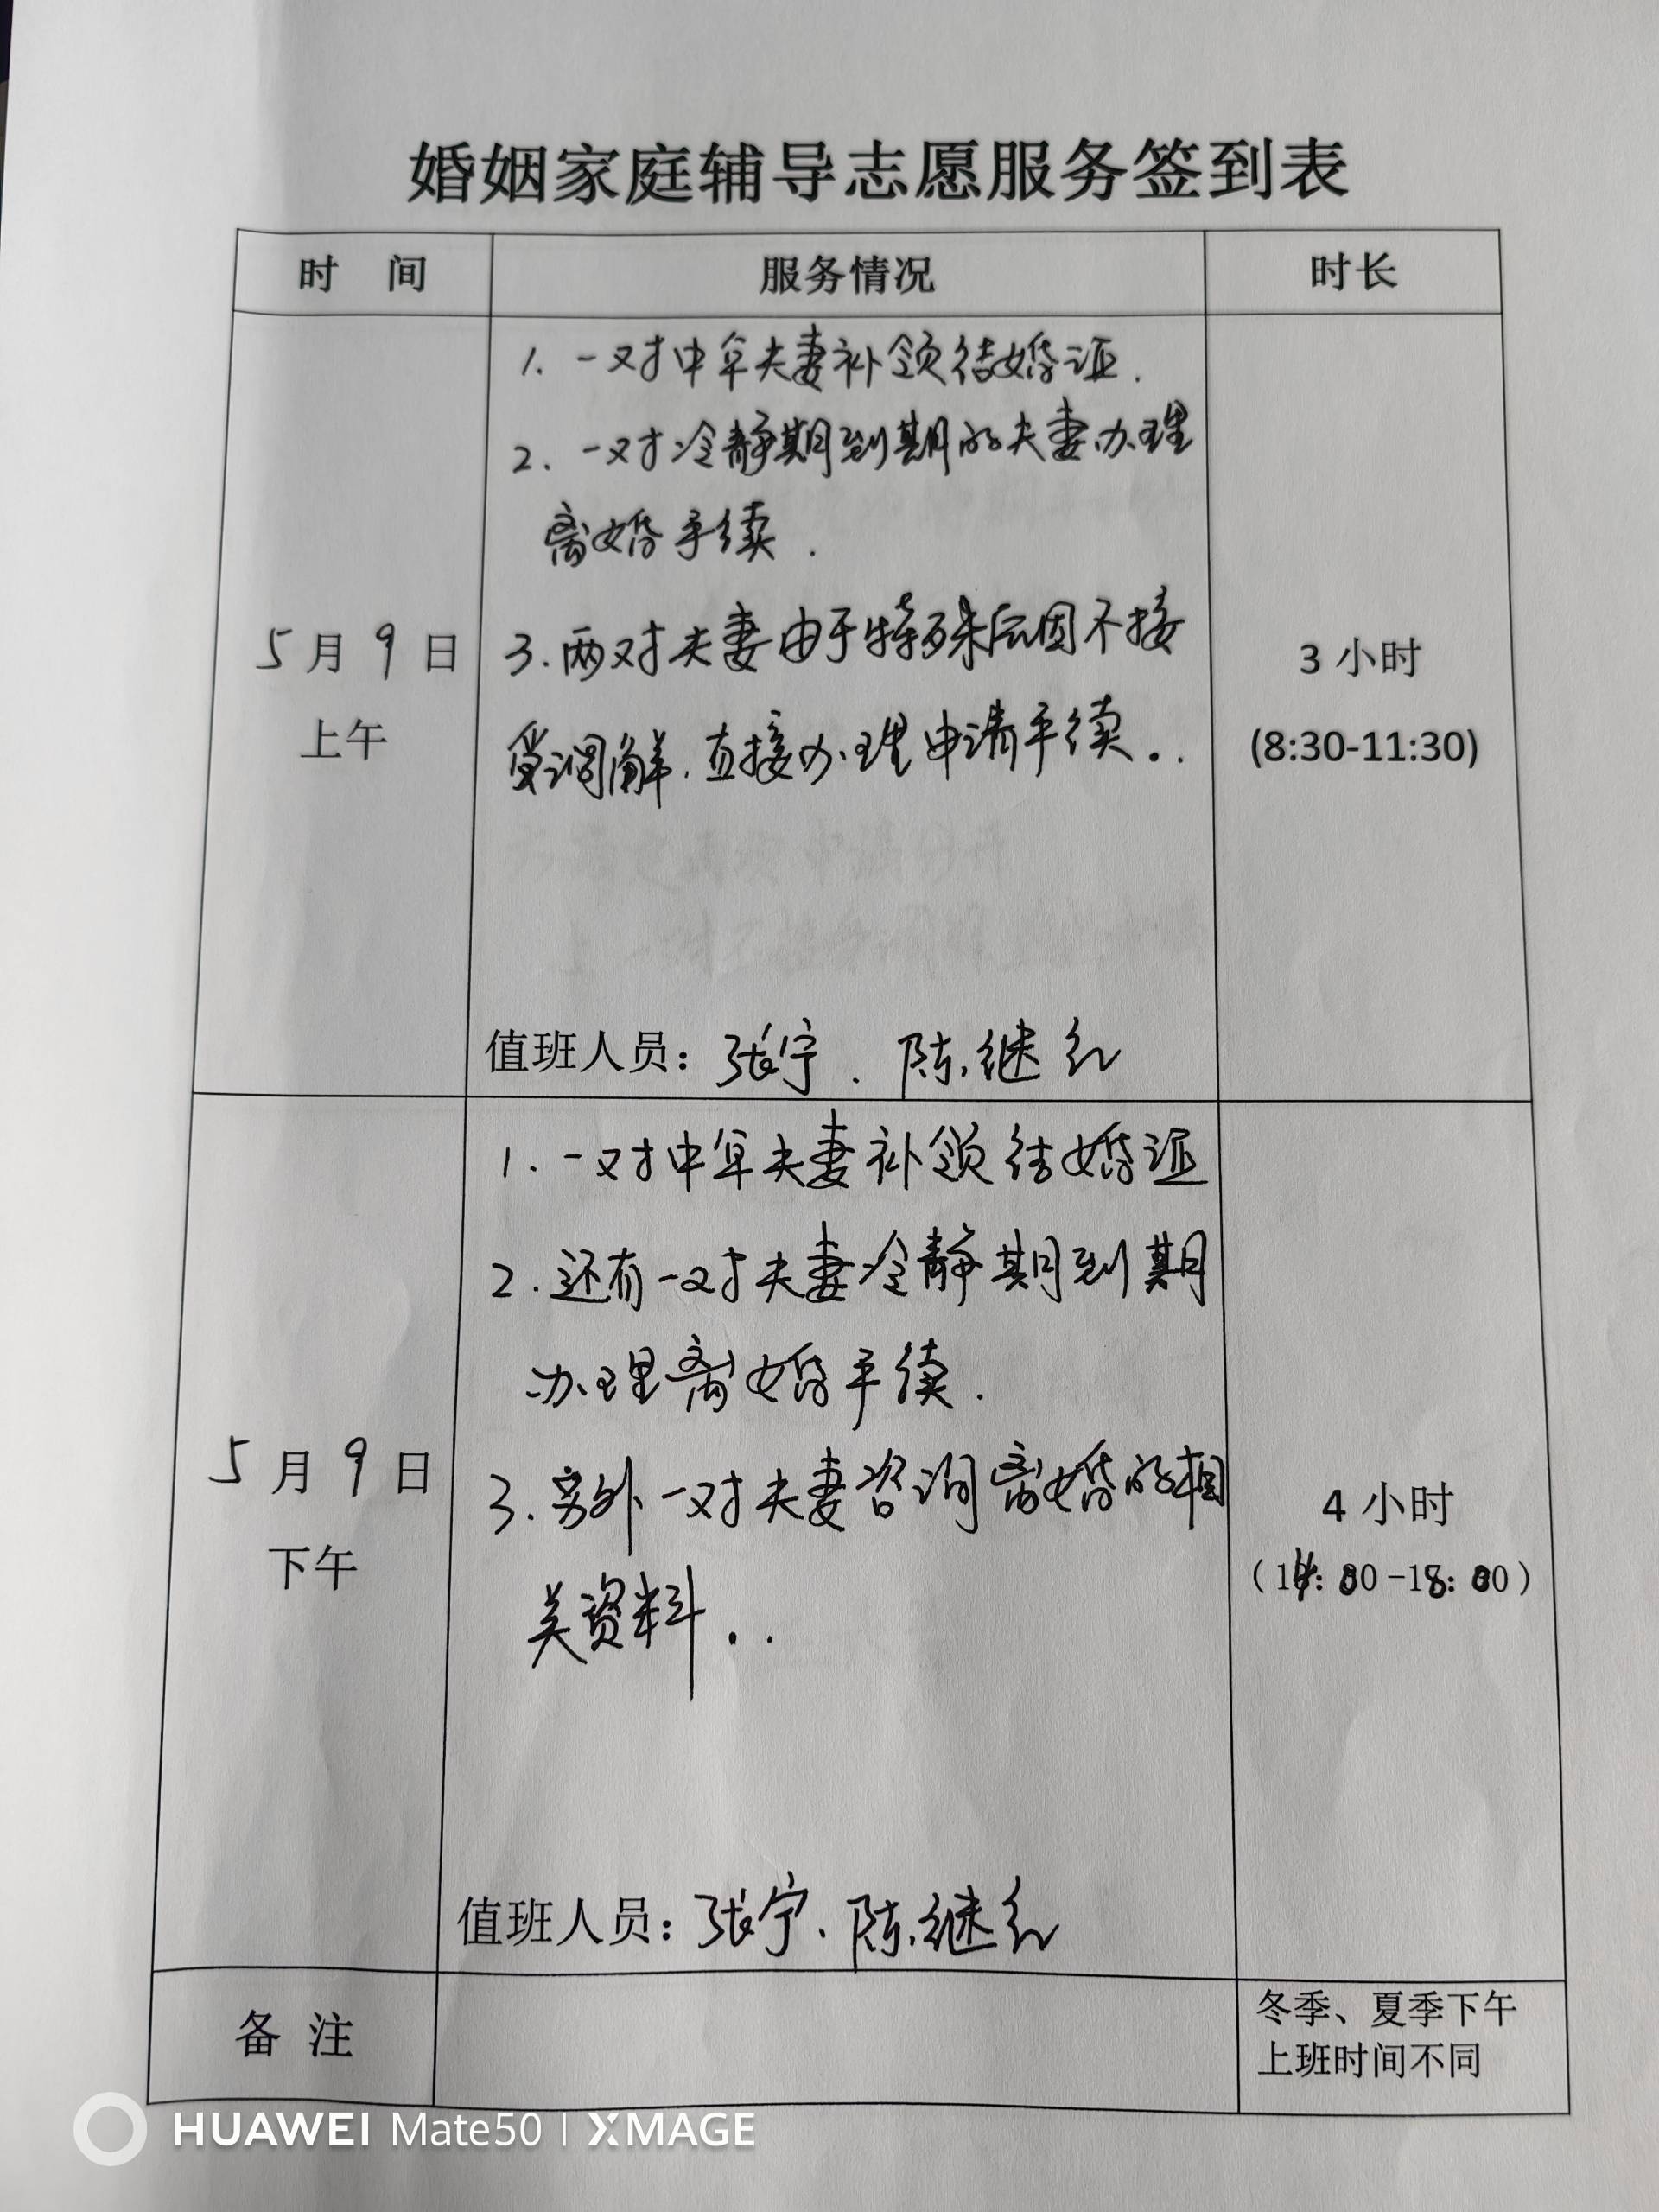 婚姻家庭辅导志愿服务签到表
时 间 服务情况 时长
1. 一对中年夫妻补领结婚证.
2. 一对冷静期到期的夫妻办理
离婚手续.
3. 两对夫妻由于特殊原因不接
受调解.直接办理申请手续..
5月9日
上午
3 小时
(8:30-11:30)
值班人员：张宁. 陈继红
1. 一对中年夫妻补领结婚证
2. 还有一对夫妻冷静期到期
办理离婚手续.
3. 另外一对夫妻咨询离婚的相
关资料..
5月9日
下午
4 小时
（14：00-18：00）
值班人员：张宁.陈继红
备 注
冬季、夏季下午
上班时间不同
HUAWEI Mate50 | XMAGE